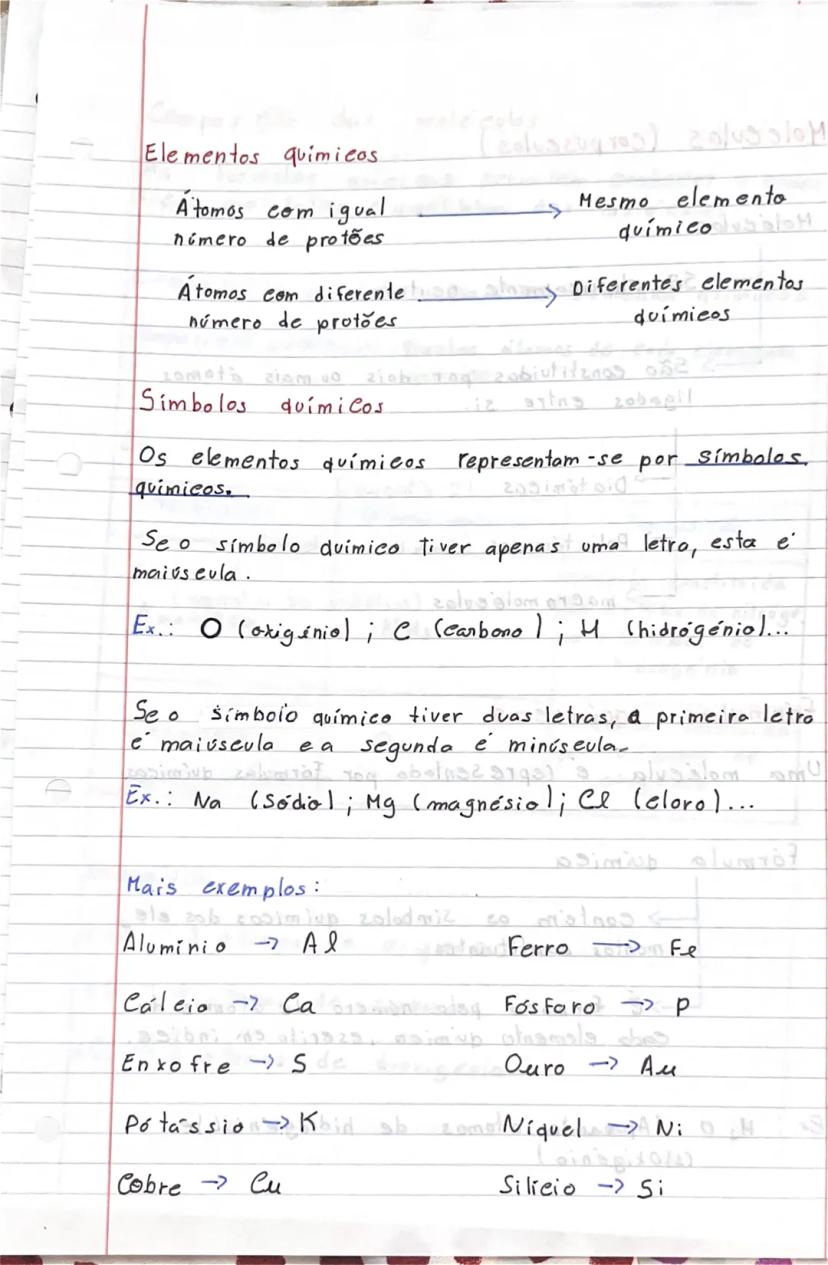 Elementos químicos
Átomos com igual → Mesmo elemento
número de protões químico
Átomos com diferente → Diferentes elementos
número de protões químicos
Símbolos químicos
Os elementos químicos representam-se por símbolos
químicos.
Se o símbolo químico tiver apenas uma letra, esta é
maiúscula.
Ex.: O (oxigénio); C (carbono); H (hidrogénio)...
Se o símbolo químico tiver duas letras, a primeira letra
é maiúscula e a segunda é minúscula.
Ex.: Na (Sódio); Mg (magnésio); Cl (cloro)...
Mais exemplos:
Alumínio → Al Ferro → Fe
Cálcio → Ca Fósforo → P
Enxofre → S Ouro → Au
Potássio → K Níquel → Ni
Cobre → Cu Silício → Si